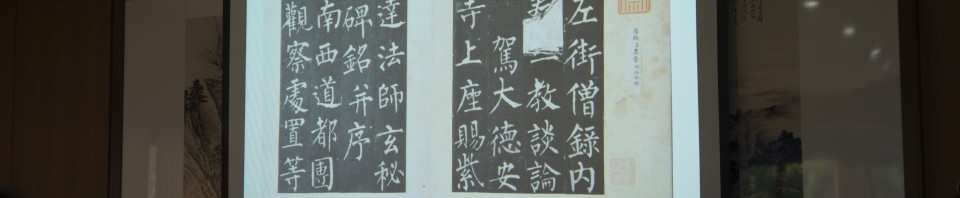 左街僧錄內
教談論
駕大德安
寺上座賜紫
達法師玄秘
碑銘并序
南西道都團
觀察處置等